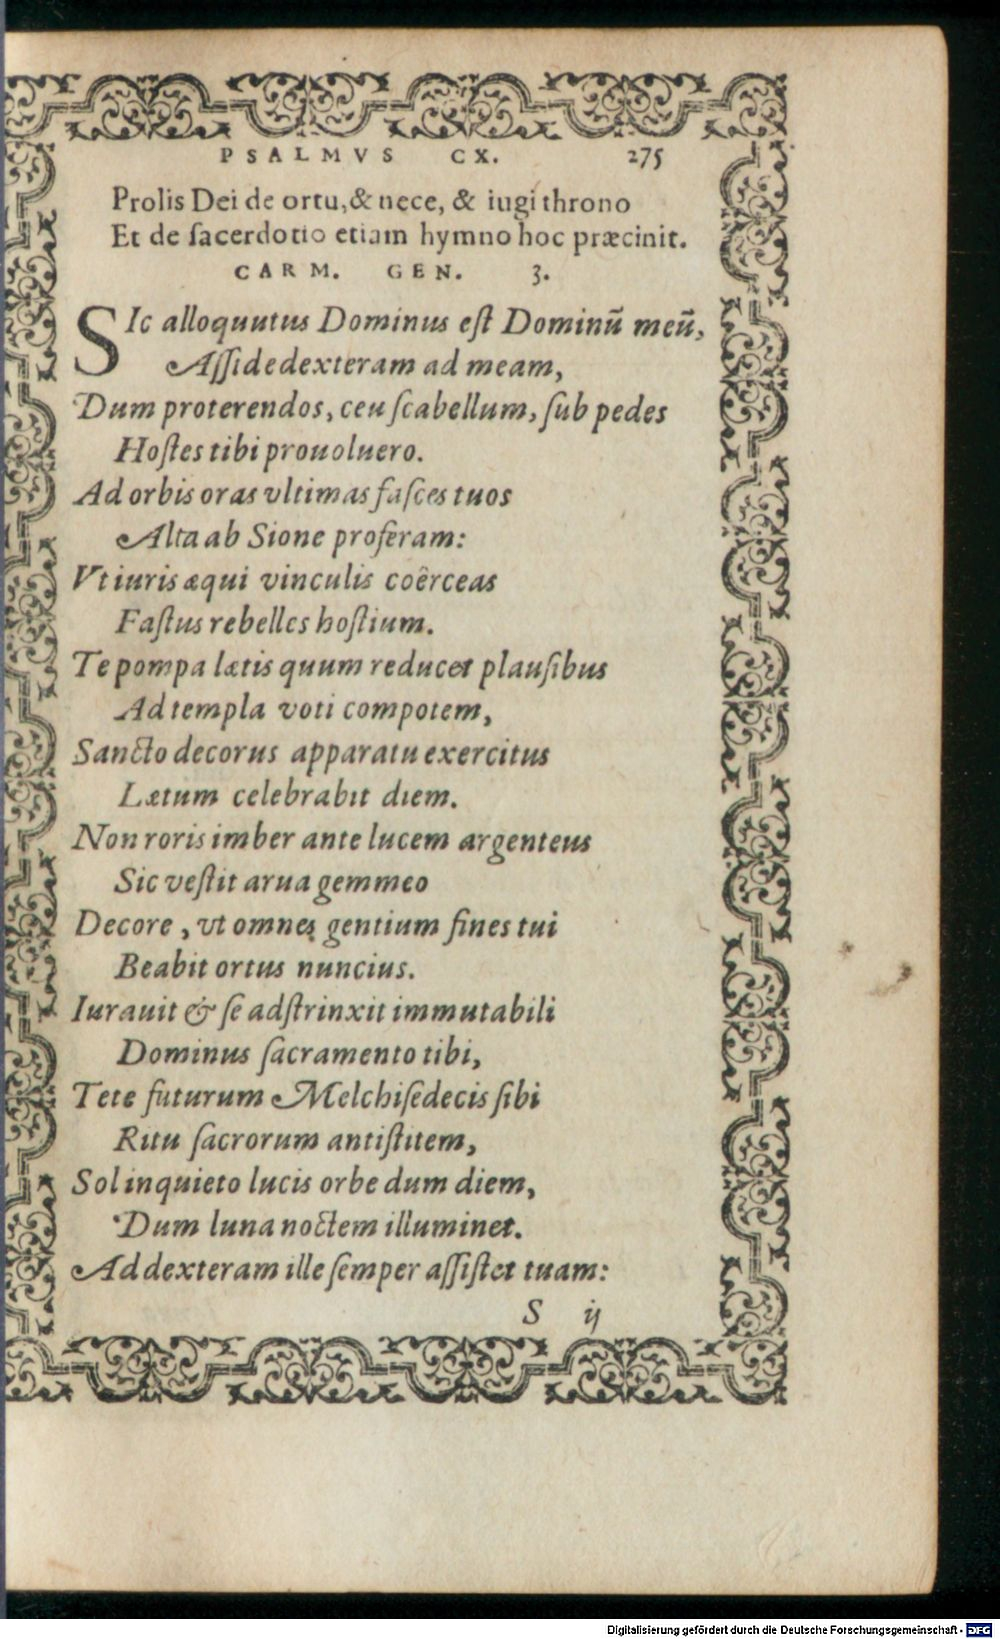 PSALMVS CX. 275
Prolis Dei de ortu, & nece, & iugi throno
Et de ſacerdotio etiam hymno hoc præcinit.
CARM. GEN. 3.
SIc alloquutus Dominus eſt Dominũ meũ,
Aſſide dexteram ad meam,
Dum proterendos, ceu ſcabellum, ſub pedes
Hoſtes tibi prouoluero.
Ad orbis oras vltimas faſces tuos
Alta ab Sione proferam:
Vt iuris æqui vinculis coêrceas
Faſtus rebelles hoſtium.
Te pompa lætis quum reducet plauſibus
Ad templa voti compotem,
Sancto decorus apparatu exercitus
Lætum celebrabit diem.
Non roris imber ante lucem argenteus
Sic veſtit arua gemmeo
Decore, vt omnes gentium fines tui
Beabit ortus nuncius.
Iurauit & ſe adſtrinxit immutabili
Dominus ſacramento tibi,
Tete futurum Melchiſedecis ſibi
Ritu ſacrorum antiſtitem,
Sol inquieto lucis orbe dum diem,
Dum luna noctem illuminet.
Ad dexteram ille ſemper aſſiſtet tuam:
S ij
Digitalisierung gefördert durch die Deutsche Forschungsgemeinschaft - DFG